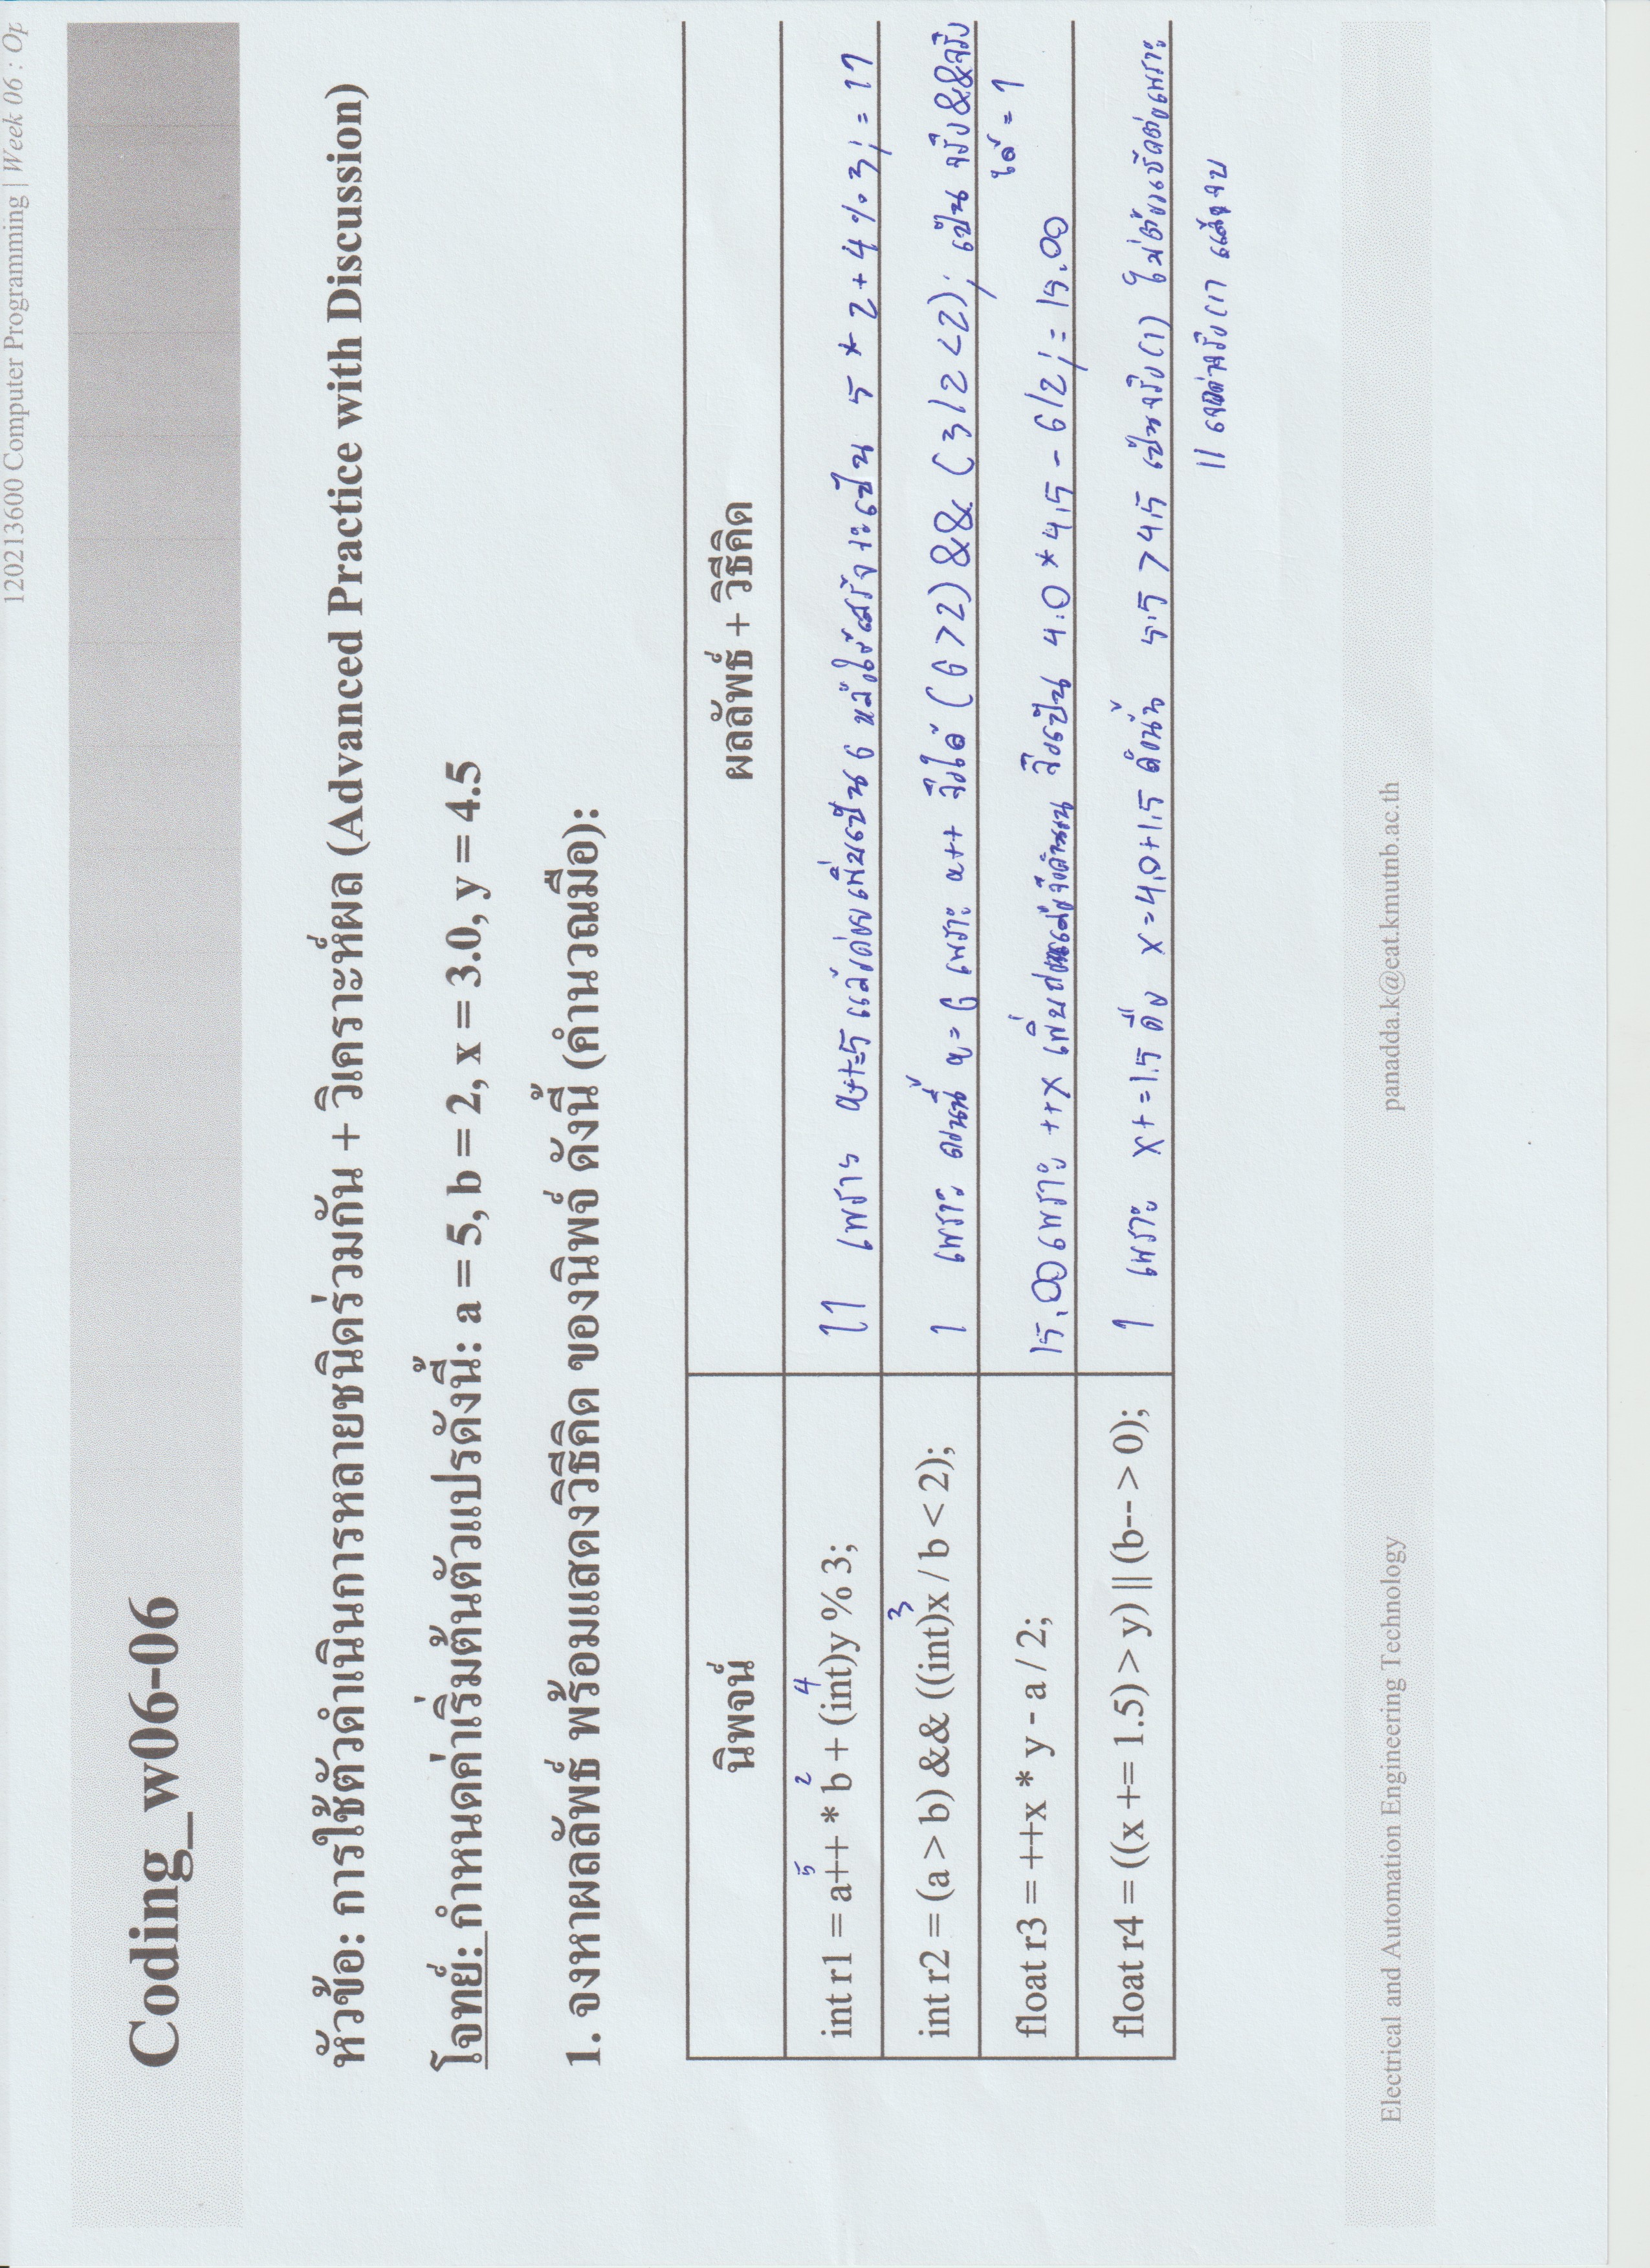 120213600 Computer Programming | Week 06 : Op
Coding_w06-06
หัวข้อ: การใช้ตัวดำเนินการหลายชนิดร่วมกัน + วิเคราะห์ผล (Advanced Practice with Discussion)
โจทย์: กำหนดค่าเริ่มต้นตัวแปรดังนี้: a = 5, b = 2, x = 3.0, y = 4.5
1. จงหาผลลัพธ์ พร้อมแสดงวิธีคิด ของนิพจ์ ดังนี้ (คำนวณมือ):
นิพจน์ ผลลัพธ์ + วิธีคิด
5 2 4
int r1 = a++ * b + (int)y % 3; 11 เพราะ a++=5 แล้วค่อยเพิ่มเป็น 6 หลังใช้เสร็จ จะเป็น 5 * 2 + 4 % 3; = 11
3
int r2 = (a > b) && ((int)x / b < 2); 1 เพราะ ตอนนี้ a = 6 เพราะ a++ จึงได้ (6 > 2) && (3/2 < 2); เป็น จริง && จริง
ได้ = 1
float r3 = ++x * y - a / 2; 15.00 เพราะ ++x เพิ่มก่อนแล้วจึงคำนวน จึงเป็น 4.0 * 4.5 - 6/2; = 15.00
float r4 = ((x += 1.5) > y) || (b-- > 0); 1 เพราะ x+=1.5 คือ x=4.0+1.5 ดังนั้น 5.5 > 4.5 เป็นจริง (1) ไม่ต้องเช็คต่อเพราะ
|| เจอค่าจริง (1) แล้วจบ
Electrical and Automation Engineering Technology panadda.k@eat.kmutnb.ac.th